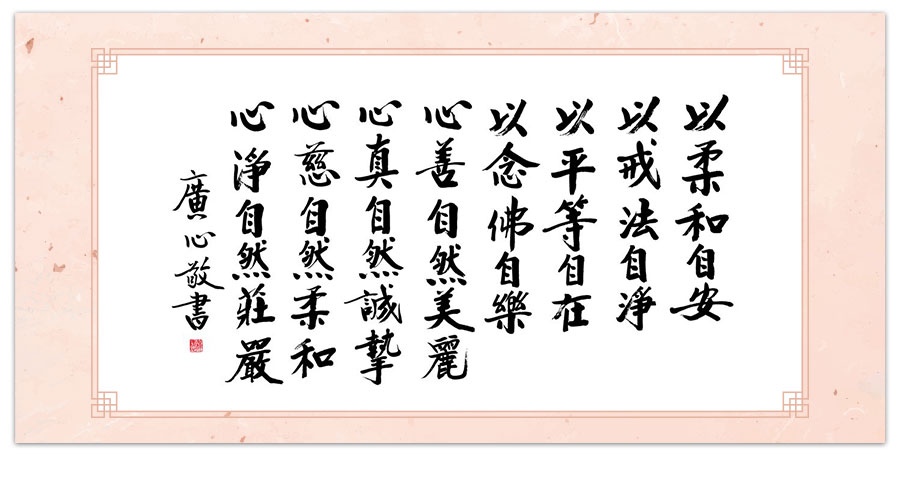 以柔和自安
以戒法自淨
以平等自在
以念佛自樂
心善自然美麗
心真自然誠摯
心慈自然柔和
心淨自然莊嚴
廣心敬書